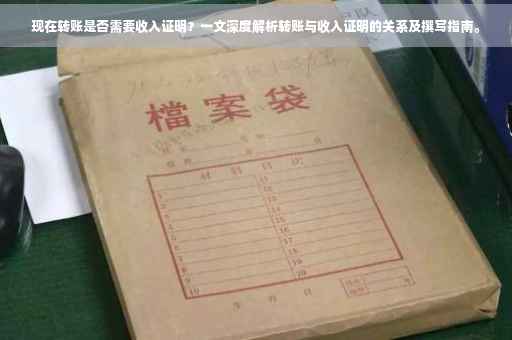 现在转账是否需要收入证明？一文深度解析转账与收入证明的关系及撰写指南。
檔案袋
材料目次
1 11
2 12
3 13
4 14
5 15
6 16
7 17
8 18
9 19
10 20
年 月 日